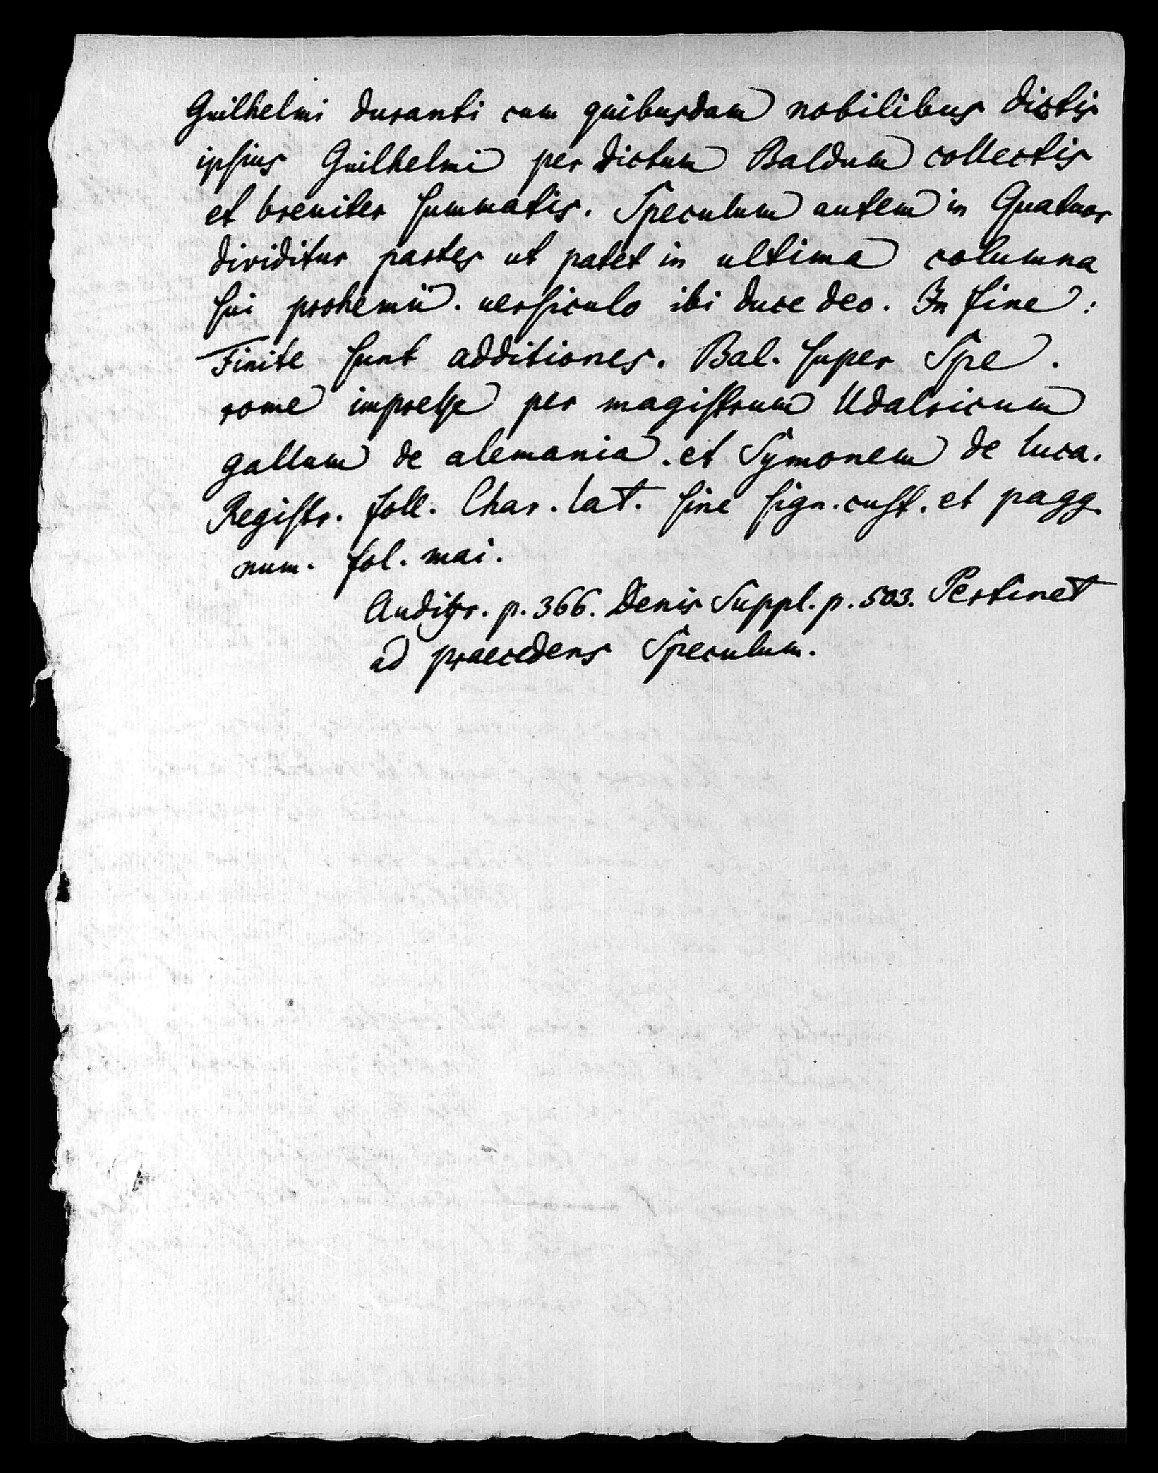 Guilhelmi duranti cum quibusdam nobilibus dictis
ipsius Guilhelmi per dictum Baldum collectis
et breuiter summatis. Speculum autem in Quatuor
dividitur partes ut patet in ultima columna
sui prohemii. uersiculo ibi duce deo. In fine:
Finite sunt additiones. Bal. super Spe.
rome impresse per magistrum Udalricum
gallum de alemania. et Symonem de luca.
Registr. foll. Char. lat. sine sign. cust. et pagg.
num. fol. mai.
p. 366. Denis Suppl. p. 503. Pertinet
ad praecedens Speculum.